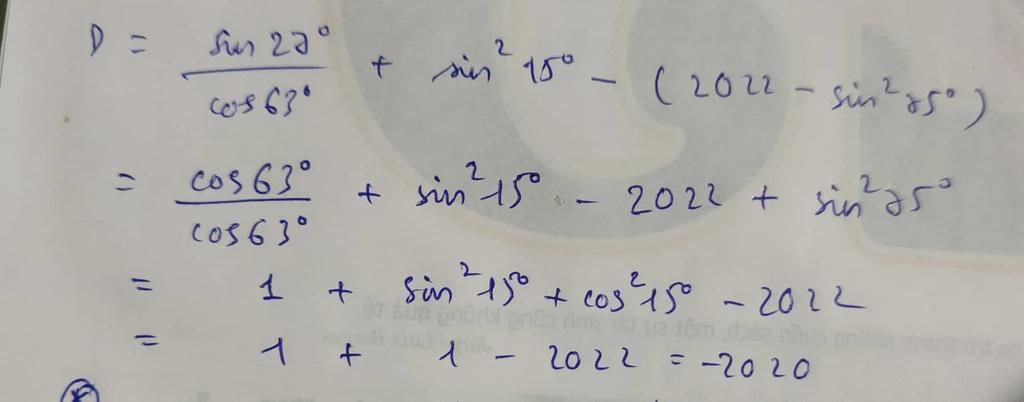 D = sin 27° / cos 63° + sin² 15° - (2022 - sin² 75°)
= cos 63° / cos 63° + sin² 15° - 2022 + sin² 75°
= 1 + sin² 15° + cos² 15° - 2022
= 1 + 1 - 2022 = -2020